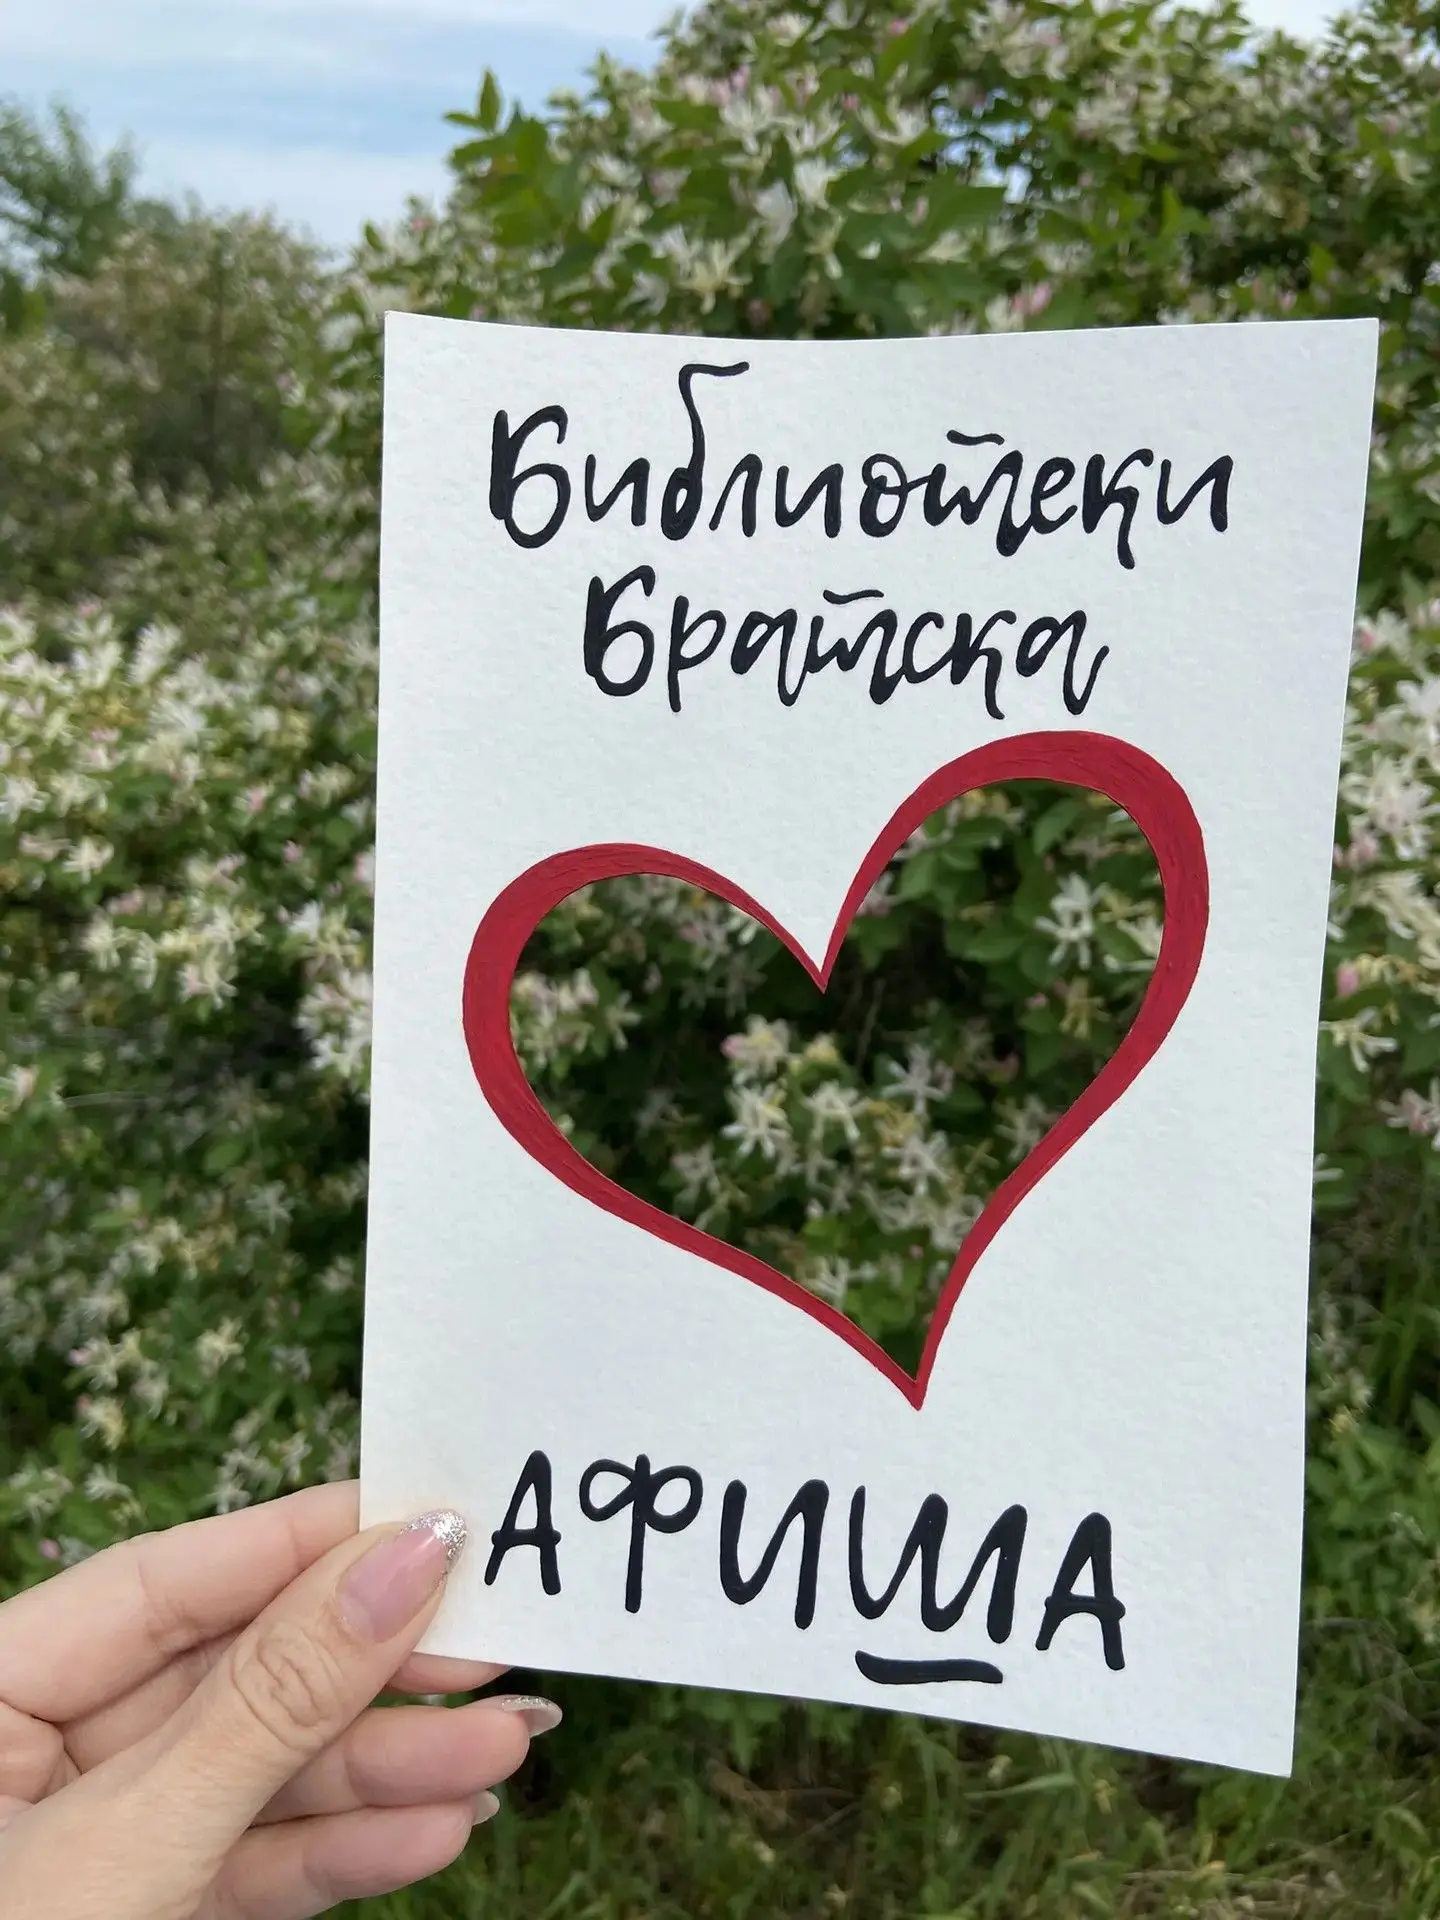 Библиотеки
Братска
АФИША